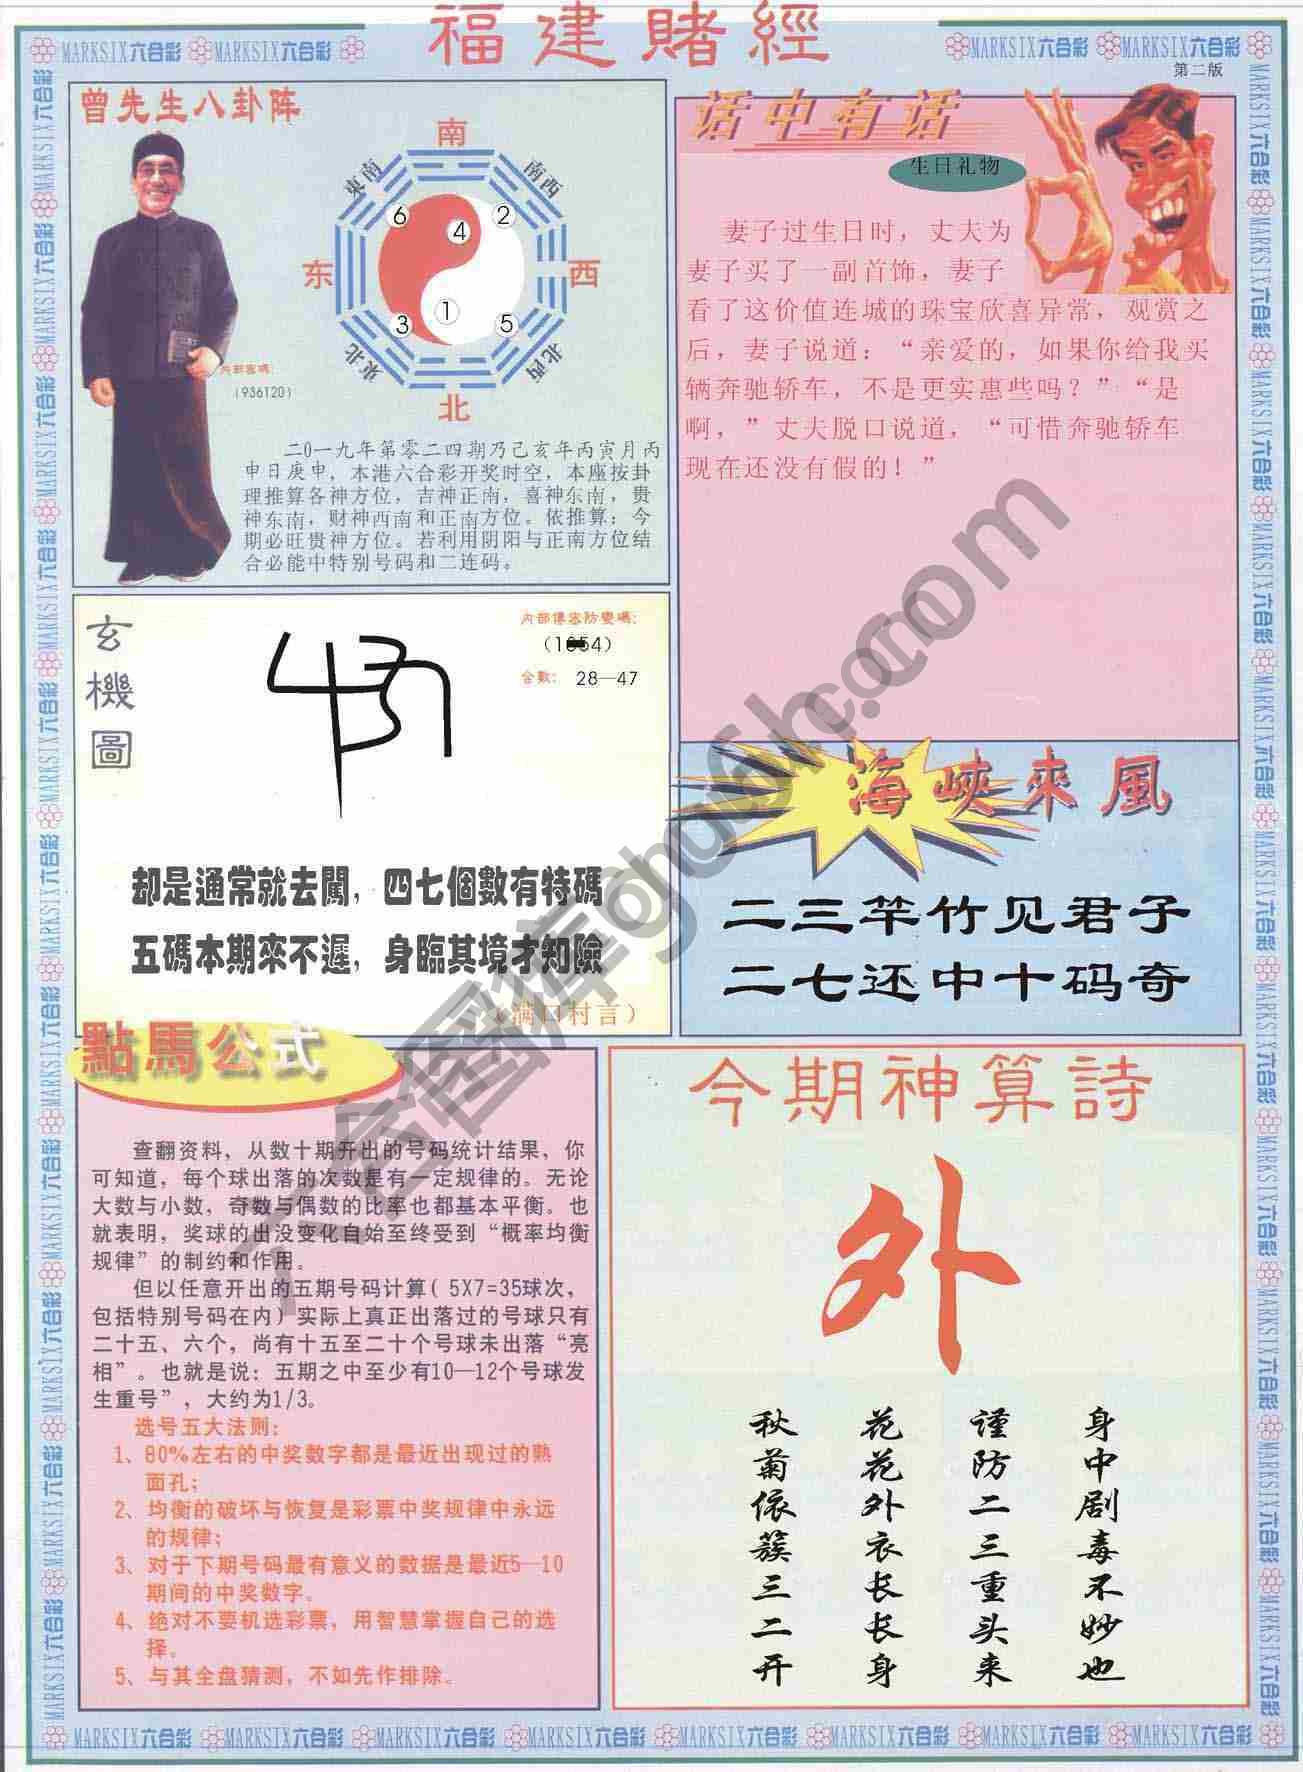 福建賭經
MARKSIX六合彩 MARKSIX六合彩
MARKSIX六合彩 MARKSIX六合彩
第二版
曾先生八卦阵
南
東南
南西
6
2
4
东
西
1
3
5
東北
北西
北
内部密碼:
(936120)
二0一九年第零二四期乃己亥年丙寅月丙
申日庚申,本港六合彩开奖时空,本座按卦
理推算各神方位,吉神正南,喜神东南,贵
神东南,财神西南和正南方位。依推算:今
期必旺贵神方位。若利用阴阳与正南方位结
合必能中特别号码和二连码。
话中有话
生日礼物
妻子过生日时,丈夫为
妻子买了一副首饰,妻子
看了这价值连城的珠宝欣喜异常,观赏之
后,妻子说道:“亲爱的,如果你给我买
辆奔驰轿车,不是更实惠些吗?”“是
啊,”丈夫脱口说道,“可惜奔驰轿车
现在还没有假的!”
玄機圖
合數: 28—47
却是通常就去闖,四七個數有特碼
五碼本期來不遲,身臨其境才知險
(满口村言)
海峽來風
二三竿竹见君子
二七还中十码奇
點馬公式
查翻资料,从数十期开出的号码统计结果,你
可知道,每个球出落的次数是有一定规律的。无论
大数与小数,奇数与偶数的比率也都基本平衡。也
就表明,奖球的出没变化自始至终受到“概率均衡
规律”的制约和作用。
但以任意开出的五期号码计算(5X7=35球次,
包括特别号码在内)实际上真正出落过的号球只有
二十五、六个,尚有十五至二十个号球未出落“亮
相”。也就是说:五期之中至少有10—12个号球发
生重号”,大约为1/3。
选号五大法则:
1、80%左右的中奖数字都是最近出现过的熟
面孔;
2、均衡的破坏与恢复是彩票中奖规律中永远
的规律;
3、对于下期号码最有意义的数据是最近5—10
期间的中奖数字。
4、绝对不要机选彩票,用智慧掌握自己的选
择。
5、与其全盘猜测,不如先作排除。
今期神算詩
外
身中剧毒不妙也
谨防二三重头来
花花外衣长长身
秋菊依簇三二开
MARKSIX六合彩 MARKSIX六合彩 MARKSIX六合彩 MARKSIX六合彩 MARKSIX六合彩 MARKSIX六合彩 MARKSIX六合彩 MARKSIX六合彩